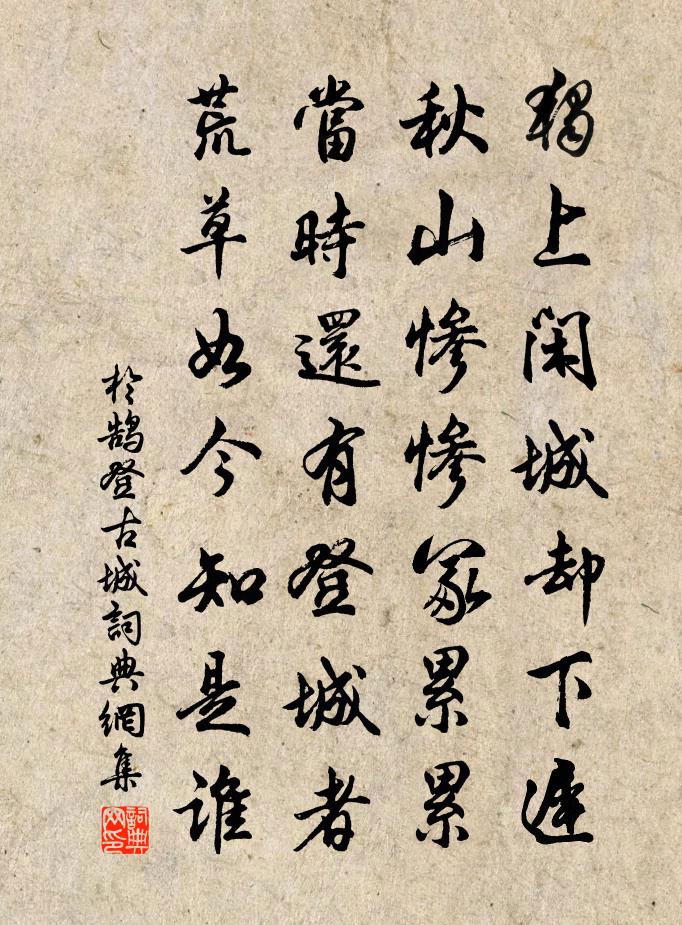 獨上閑城却下遲
秋山慘慘冢累累
當時還有登城者
荒草如今知是誰
於鵠登古城詞典網集
詞典網印